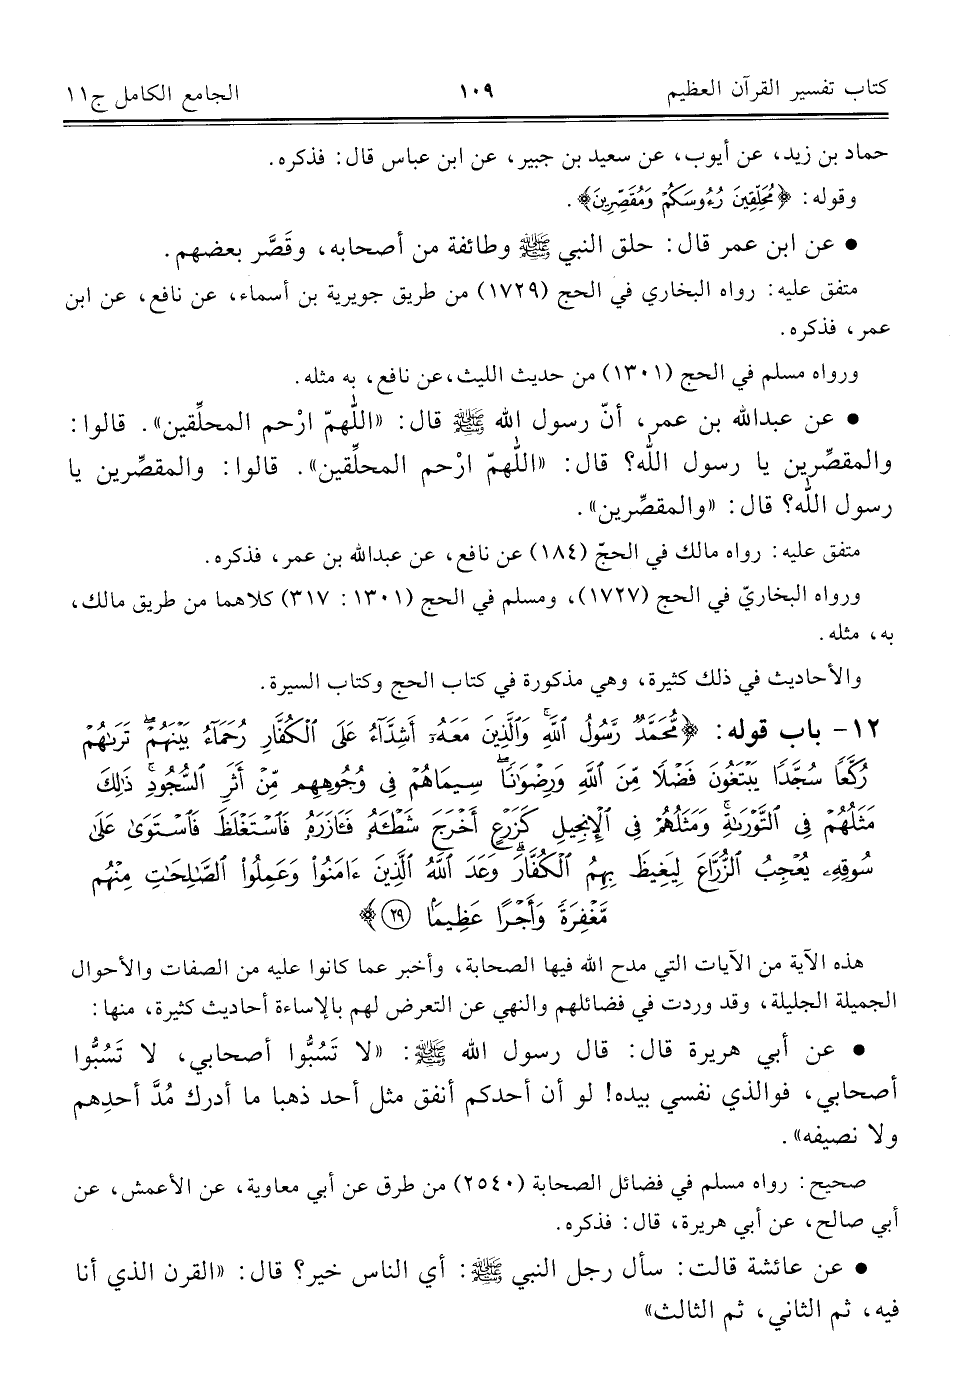 كتاب تفسير القرآن العظيم ١٠٩ الجامع الكامل ج١١
حماد بن زيد، عن أيوب، عن سعيد بن جبير، عن ابن عباس قال: فذكره.
وقوله: ﴿مُحَلِّقِينَ رُءُوسَكُمْ وَمُقَصِّرِينَ﴾.
• عن ابن عمر قال: حلق النبي ﷺ وطائفة من أصحابه، وقَصَّر بعضهم.
متفق عليه: رواه البخاري في الحج (١٧٢٩) من طريق جويرية بن أسماء، عن نافع، عن ابن
عمر، فذكره.
ورواه مسلم في الحج (١٣٠١) من حديث الليث،عن نافع، به مثله.
• عن عبدالله بن عمر، أنّ رسول الله ﷺ قال: «اللّهمّ ارْحم المحلِّقين». قالوا:
والمقصِّرين يا رسول الله؟ قال: «اللّهمّ ارْحم المحلِّقين». قالوا: والمقصِّرين يا
رسول الله؟ قال: «والمقصِّرين».
متفق عليه: رواه مالك في الحجّ (١٨٤) عن نافع، عن عبدالله بن عمر، فذكره.
ورواه البخاريّ في الحج (١٧٢٧)، ومسلم في الحج (١٣٠١: ٣١٧) كلاهما من طريق مالك،
به، مثله.
والأحاديث في ذلك كثيرة، وهي مذكورة في كتاب الحج وكتاب السيرة.
١٢- باب قوله: ﴿مُّحَمَّدٌ رَّسُولُ ٱللَّهِۚ وَٱلَّذِينَ مَعَهُۥٓ أَشِدَّآءُ عَلَى ٱلْكُفَّارِ رُحَمَآءُ بَيْنَهُمْۖ تَرَىٰهُمْ
رُكَّعًا سُجَّدًا يَبْتَغُونَ فَضْلًا مِّنَ ٱللَّهِ وَرِضْوَٰنًاۖ سِيمَاهُمْ فِى وُجُوهِهِم مِّنْ أَثَرِ ٱلسُّجُودِۚ ذَٰلِكَ
مَثَلُهُمْ فِى ٱلتَّوْرَىٰةِۚ وَمَثَلُهُمْ فِى ٱلْإِنجِيلِ كَزَرْعٍ أَخْرَجَ شَطْـَٔهُۥ فَـَٔازَرَهُۥ فَٱسْتَغْلَظَ فَٱسْتَوَىٰ عَلَىٰ
سُوقِهِۦ يُعْجِبُ ٱلزُّرَّاعَ لِيَغِيظَ بِهِمُ ٱلْكُفَّارَۗ وَعَدَ ٱللَّهُ ٱلَّذِينَ ءَامَنُواْ وَعَمِلُواْ ٱلصَّٰلِحَٰتِ مِنْهُم
مَّغْفِرَةً وَأَجْرًا عَظِيمًۢا ۝٢٩﴾
هذه الآية من الآيات التي مدح الله فيها الصحابة، وأخبر عما كانوا عليه من الصفات والأحوال
الجميلة الجليلة، وقد وردت في فضائلهم والنهي عن التعرض لهم بالإساءة أحاديث كثيرة، منها:
• عن أبي هريرة قال: قال رسول الله ﷺ: «لا تَسُبُّوا أصحابي، لا تَسُبُّوا
أصحابي، فوالذي نفسي بيده! لو أن أحدكم أنفق مثل أحد ذهبا ما أدرك مُدَّ أحدِهم
ولا نصيفه».
صحيح: رواه مسلم في فضائل الصحابة (٢٥٤٠) من طرق عن أبي معاوية، عن الأعمش، عن
أبي صالح، عن أبي هريرة، قال: فذكره.
• عن عائشة قالت: سأل رجل النبي ﷺ: أي الناس خير؟ قال: «القرن الذي أنا
فيه، ثم الثاني، ثم الثالث»